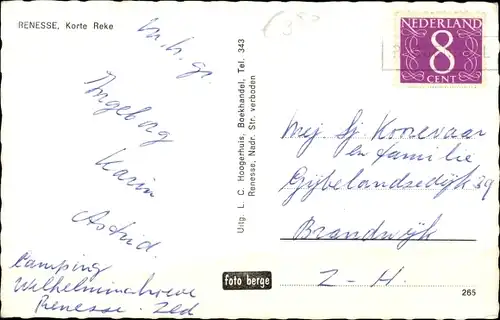 RENESSE, Korte Reke
m. h. gr.
Ingeborg
Karin
Astrid.
Camping
Wilhelminahoeve
Renesse. Zld
Uitg. L. C. Hoogerhuis, Boekhandel, Tel. 343
Renesse, Nadr. Str. verboden
foto berge
NEDERLAND
8
CENT
Mej. Sj. Koorevaar
en familie
Gijbelandsedijk 39
Brandwijk
Z-H.
265